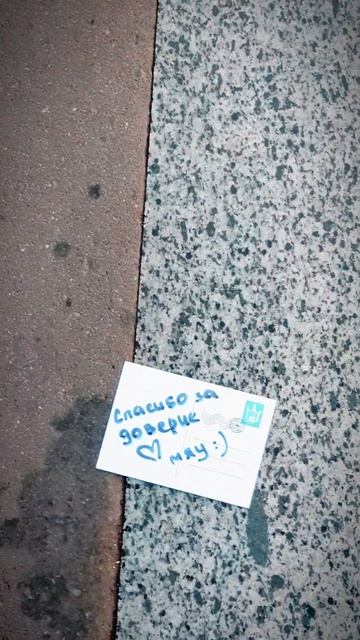 Спасибо за
доверие
♡ мяу :)